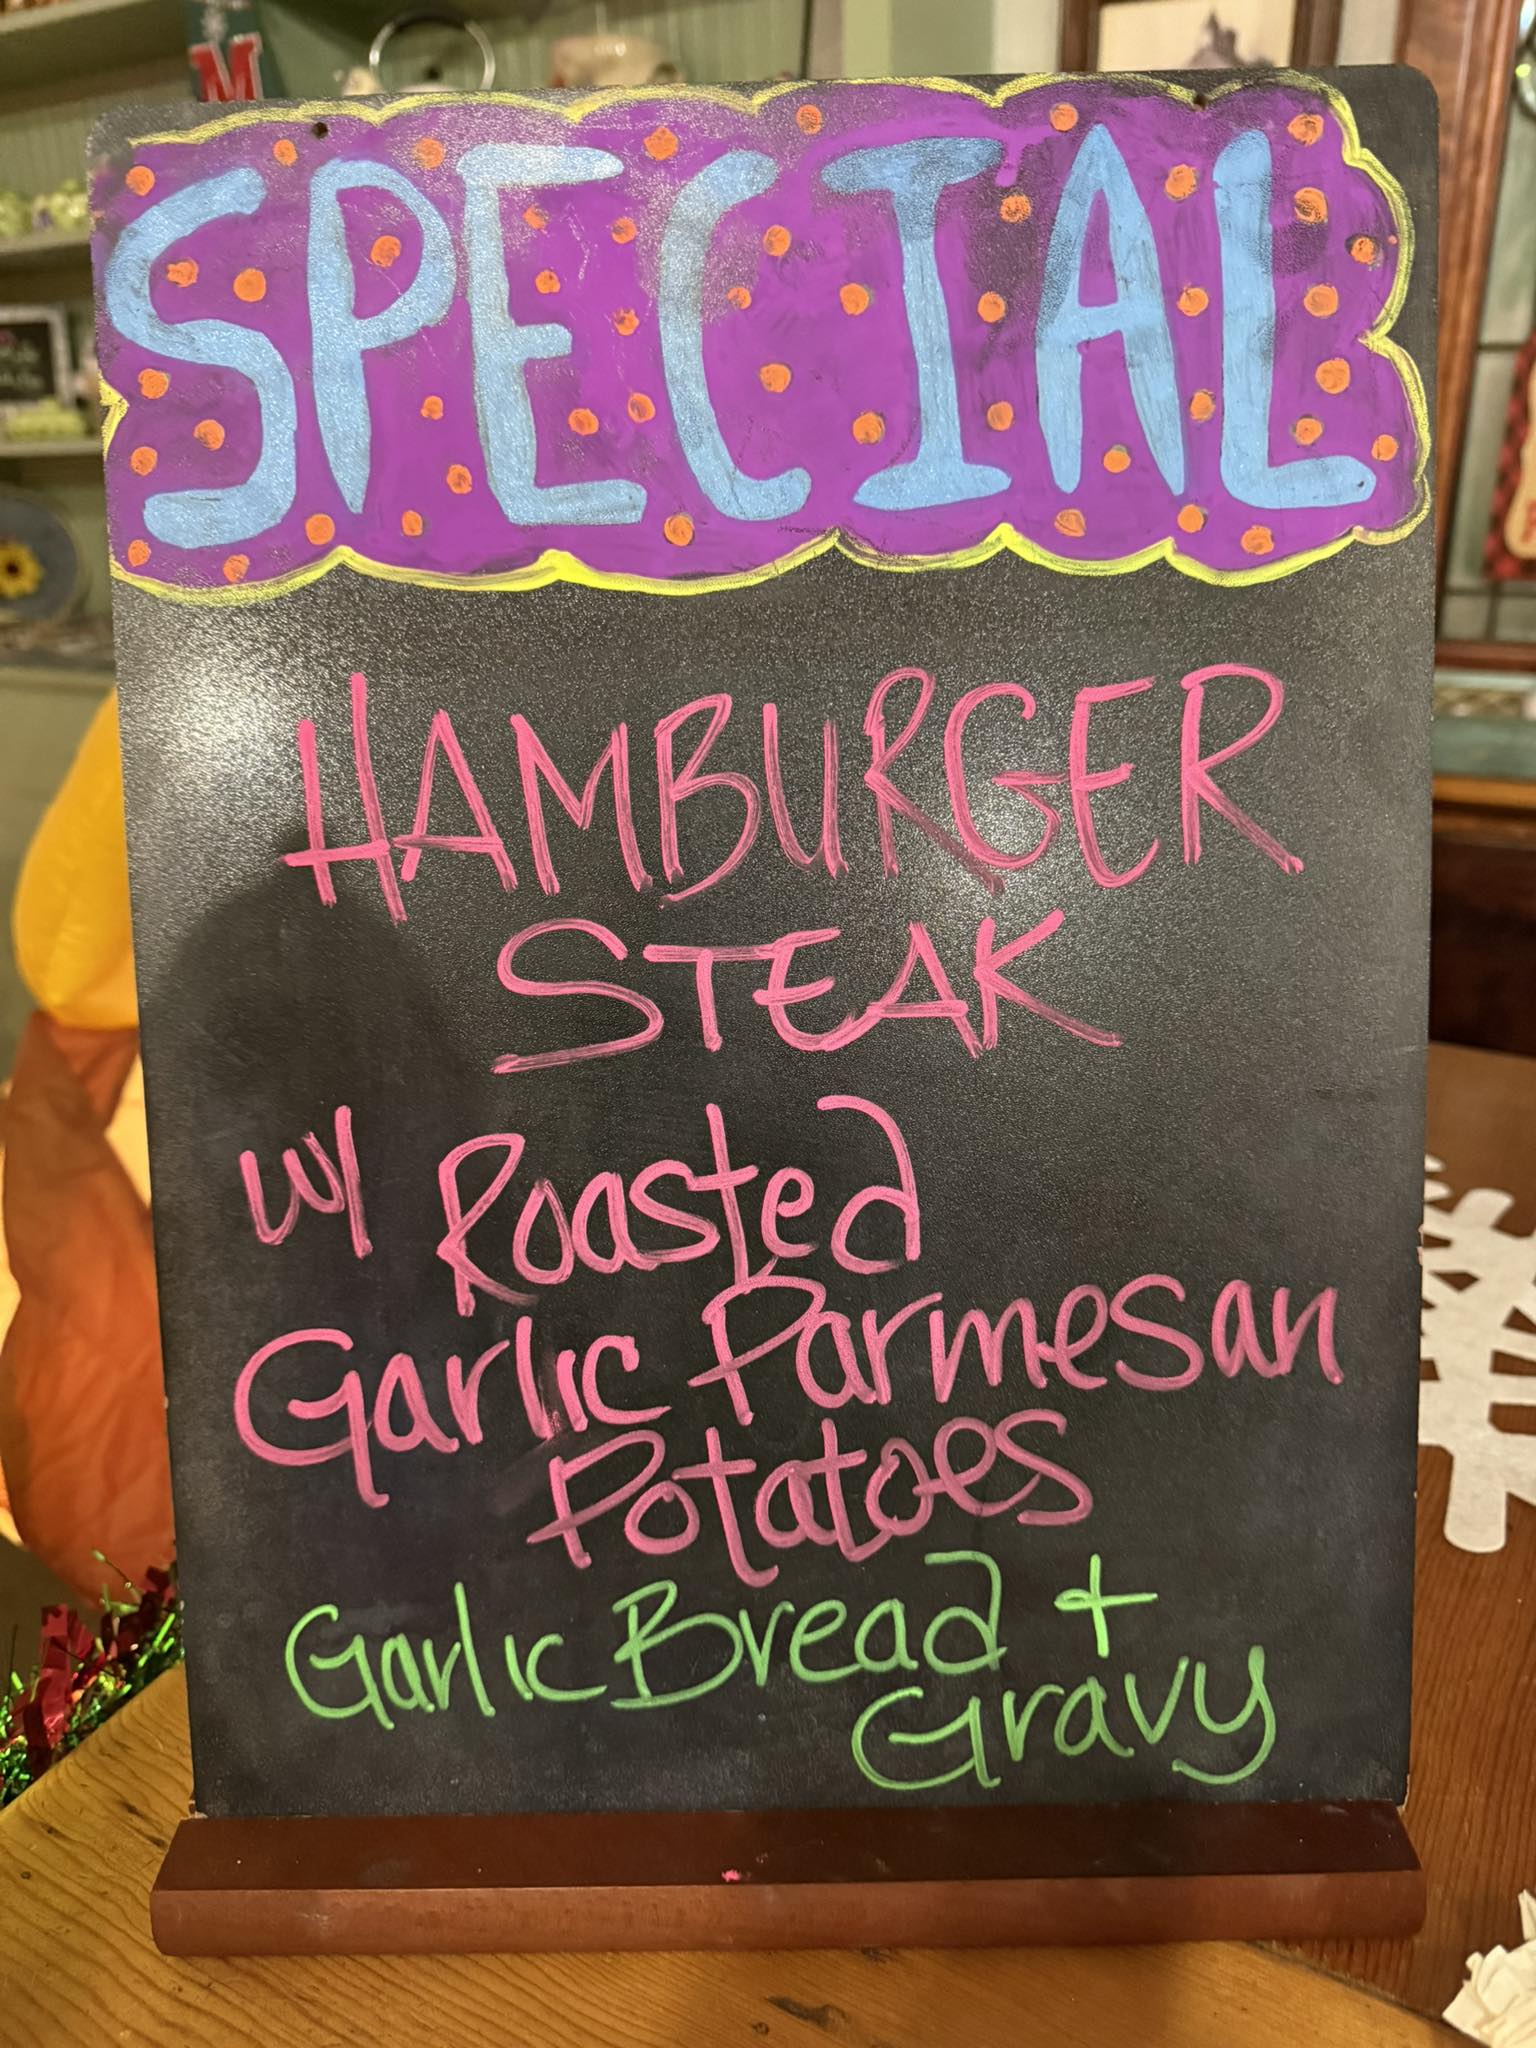 M
SPECIAL
HAMBURGER
STEAK
w/ Roasted
Garlic Parmesan
Potatoes
Garlic Bread +
Gravy